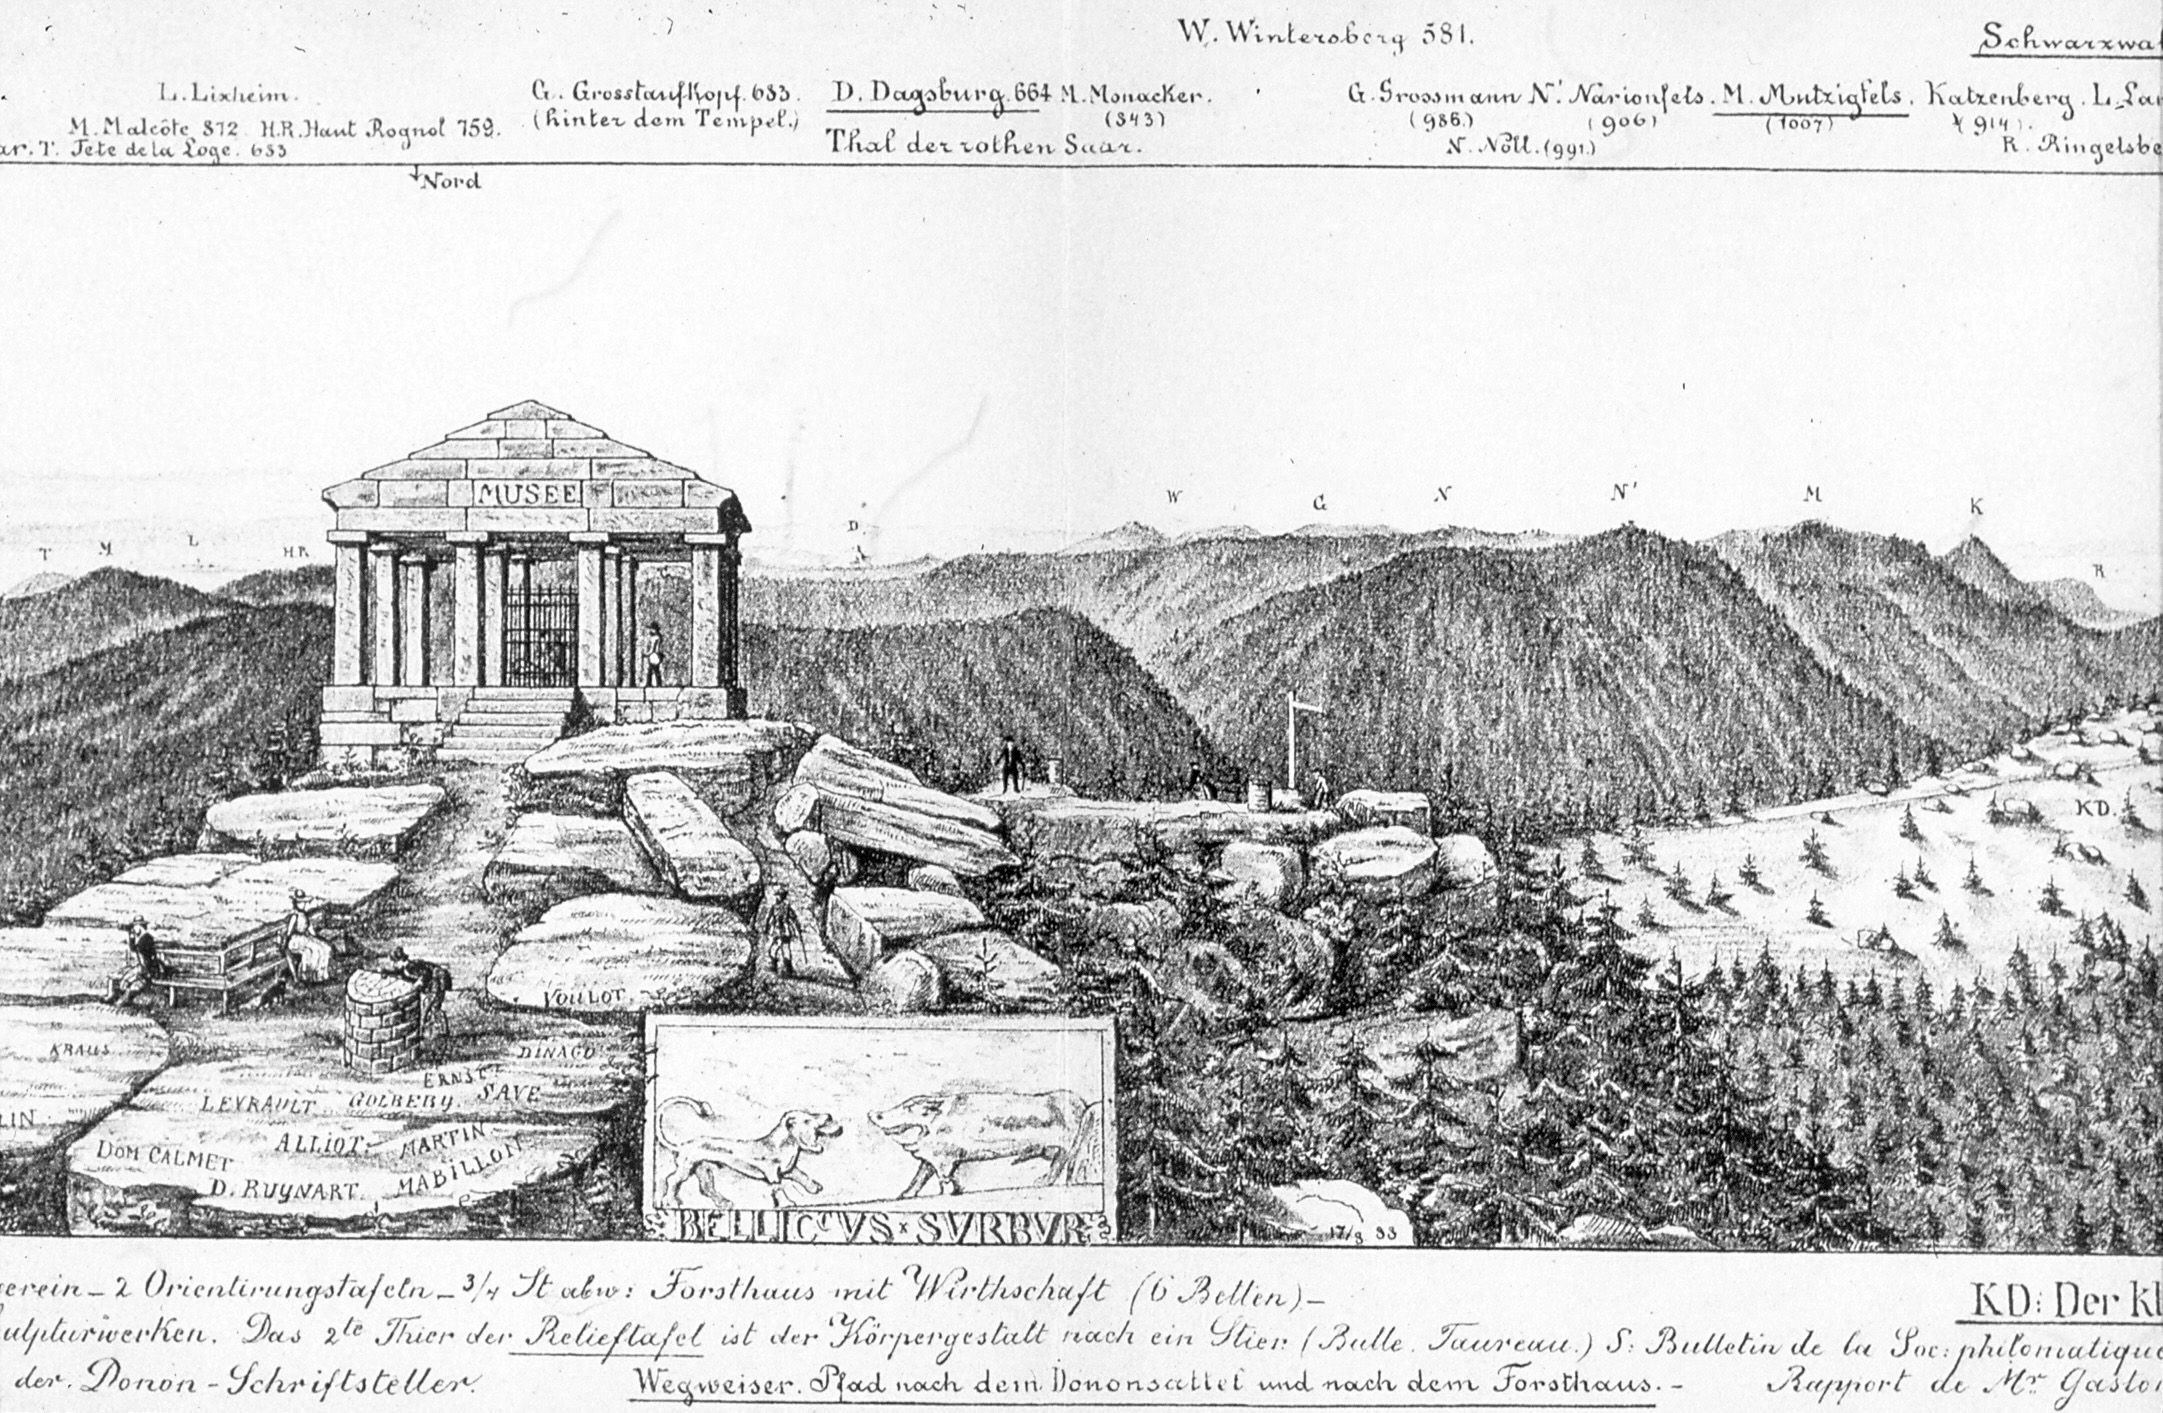 W. Wintersberg 581.
Schwarzwal
L. Lixheim.
G. Grosstaufkopf. 683.
D. Dagsburg. 664 M. Monacker.
G. Grossmann N.' Narionfels. M. Mutzigfels. Katzenberg. L. Lar
M. Malcôte 872 H.R. Haut Rognol 759.
(hinter dem Tempel.)
(843)
(986.)
(906)
(1007)
(914).
ar. T. Tete de la Loge. 683
Thal der rothen Saar.
N. Noll. (991.)
R. Ringelsbe
Nord
MUSEE
W G N N' M K
D.
T M L H.R.
R
KD.
VOULOT.
KRAUS
DINAGO
ERNST
LEVRAULT GOLBERY. SAVE
LIN
ALLIOT. MARTIN.
DOM CALMET
MABILLON
D. RUYNART.
BELLICcVS x SVRBVR
17/8 93
verein – 2 Orientirungstafeln – 3/4 St abw: Forsthaus mit Wirthschaft (6 Betten) –
KD: Der kl
culpturwerken. Das 2te Thier der Relieftafel ist der Körpergestalt nach ein Stier (Bulle. Taureau.) S: Bulletin de la Soc: philomatique
der. Donon – Schriftsteller.
Wegweiser. Pfad nach dem Dononsattel und nach dem Forsthaus. –
Rapport de Mr Gaston